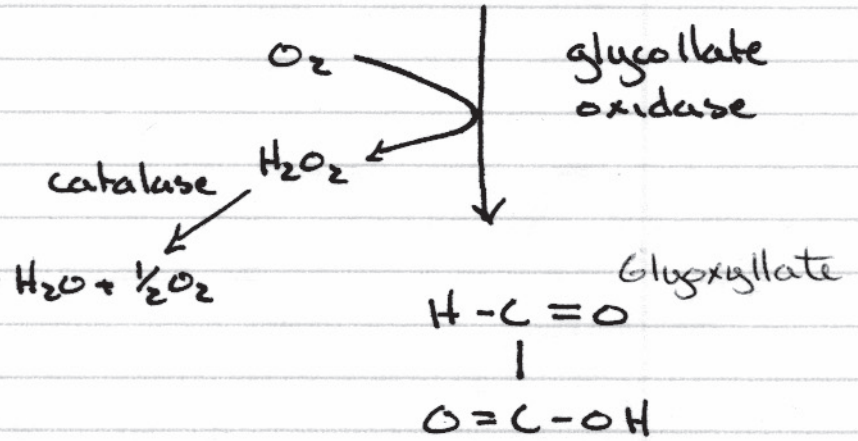 O₂
glycollate
oxidase
H₂O₂
catalase
H₂O + ½O₂
Glyoxyllate
H - C = O
|
O = C - OH